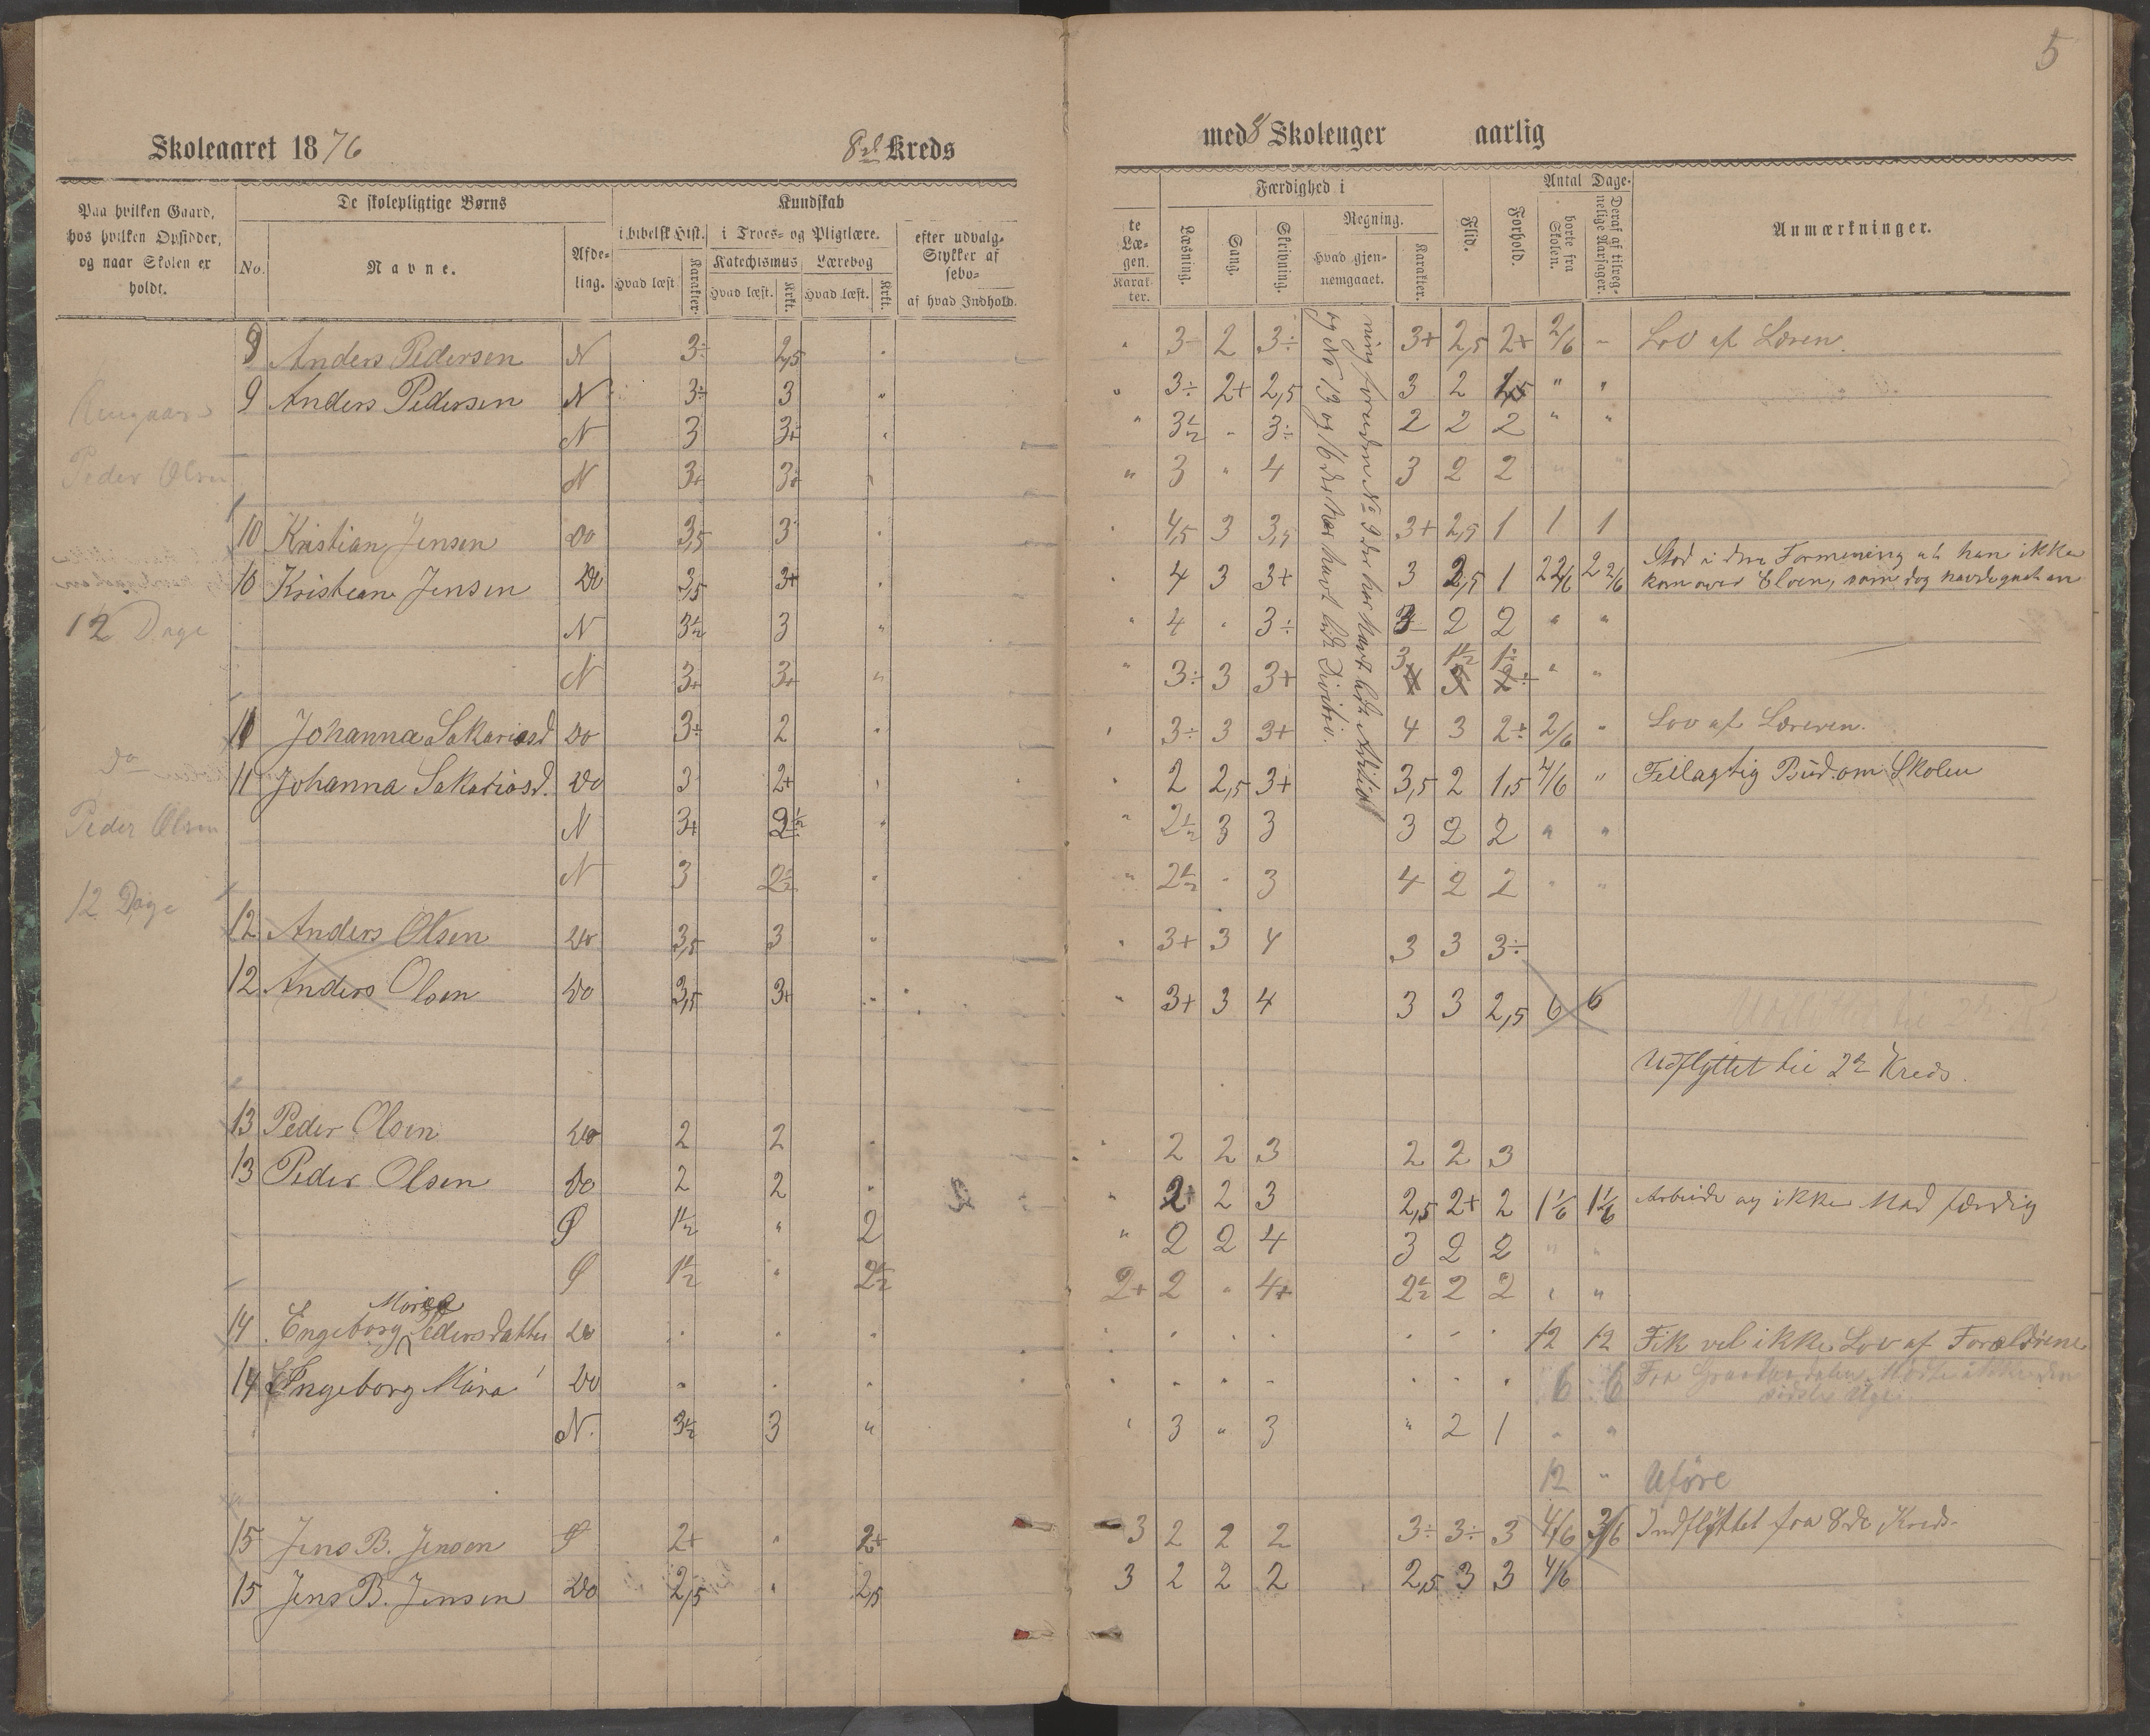 5
Skoleaaret 1876 8de Kreds med 8 Skoleuger aarlig
Paa hvilken Gaard, hos hvilken Opsidder, og naar Skolen er holdt.
No.
De skolepligtige Børns
Navne.
Afde-
ling.
Kundskab
i bibelsk Hist.
Hvad læst
Karakter.
i Troes- og Pligtlære.
Katechismus
Hvad læst.
Krkt.
Lærebog
Hvad læst.
Krkt.
efter udvalg-
Stykker af
sebo-
af hvad Indhold.
te
Læ-
gen.
Karak-
ter.
Færdighed i
Læsning.
Sang.
Skrivning.
Regning.
Hvad gjen-
nemgaaet.
Karakter.
Flid.
Forhold.
Antal Dage
borte fra
Skolen.
Deraf af tilreg-
nelige Aarsager.
Anmærkninger.
8 Anders Pedersen N 3÷ 2,5 " " 3- 2 3÷ 3+ 2,5 2+ 2/6 - Lov af Læren.
9 Anders Pedersen N 3÷ 3 " " 3÷ 2+ 2,5 3 2 " "
N 3 3+ " " 3½ " 3÷ 2 2 2 " "
Peder Olsen N 3+ 3+ " " 3 " 4 3 2 2 " "
10 Kristian Jensen Do 3,5 3 " " 4,5 3 3,5 3+ 2,5 1 1 1
10 Kristian Jensen Do 3,5 3+ " " 4 3 3+ 3 2,5 1 2 2/6 2 2/6 Stod i den Formening at han ikke
kom over Elven, som dog havde gaat an
12 Dage N 3½ 3 " " 4 " 3÷ 3 2 2 " "
N 3+ 3+ " " 3÷ 3 3+ 3 1½ " "
11 Johanna Sakariasd Do 3÷ 2 " " 3÷ 3 3+ 4 3 2+ 2/6 " Lov af Læreren.
do
11 Johanna Sakariasd. Do 3 2+ " " 2 2,5 3+ 3,5 2 1,5 4/6 " Feilagtig Bud om Skolen
Peder Olsen N 3+ 2½ " " 2½ 3 3 3 2 2 " "
N 3 2½ " " 2½ " 3 4 2 2 " "
12 Dage
12 Anders Olsen Do 3,5 3 " " 3+ 3 4 3 3 3÷
12 Anders Olsen Do 3,5 3+ " " 3+ 3 4 3 3 2,5 6 6
Udflyttet til 2de Kreds.
13 Peder Olsen Do 2 2 " " 2 2 3 2 2 3
13 Peder Olsen Do 2 2 " " 2+ 2 3 2,5 2+ 2 1 1/6 1 1/6 Arbeide og ikke Mad færdig
Ø 1½ " 2 " 2 2 4 3 2 2 " "
Ø 1½ " 2½ 2+ 2 " 4+ 2½ 2 2 " "
Maria
14 Engeborg Pedersdatter Do " " " " " " " " " " 12 12 Fik vel ikke Lov af Forældrene
14 Engeborg Maria Do " " " " " " " " " " 6 6 Fra
N. 3½ 3 " " 3 " 3 " 2 1 " "
12 " Uføre
15 Jens B. Jensen Ø 2+ " 2+ 3 2 2 2 3÷ 3÷ 3 4/6 3/6 Indflyttet fra 8de Kreds
15 Jens B. Jensen Do 2,5 " 2,5 3 2 2 2 2,5 3 3 4/6